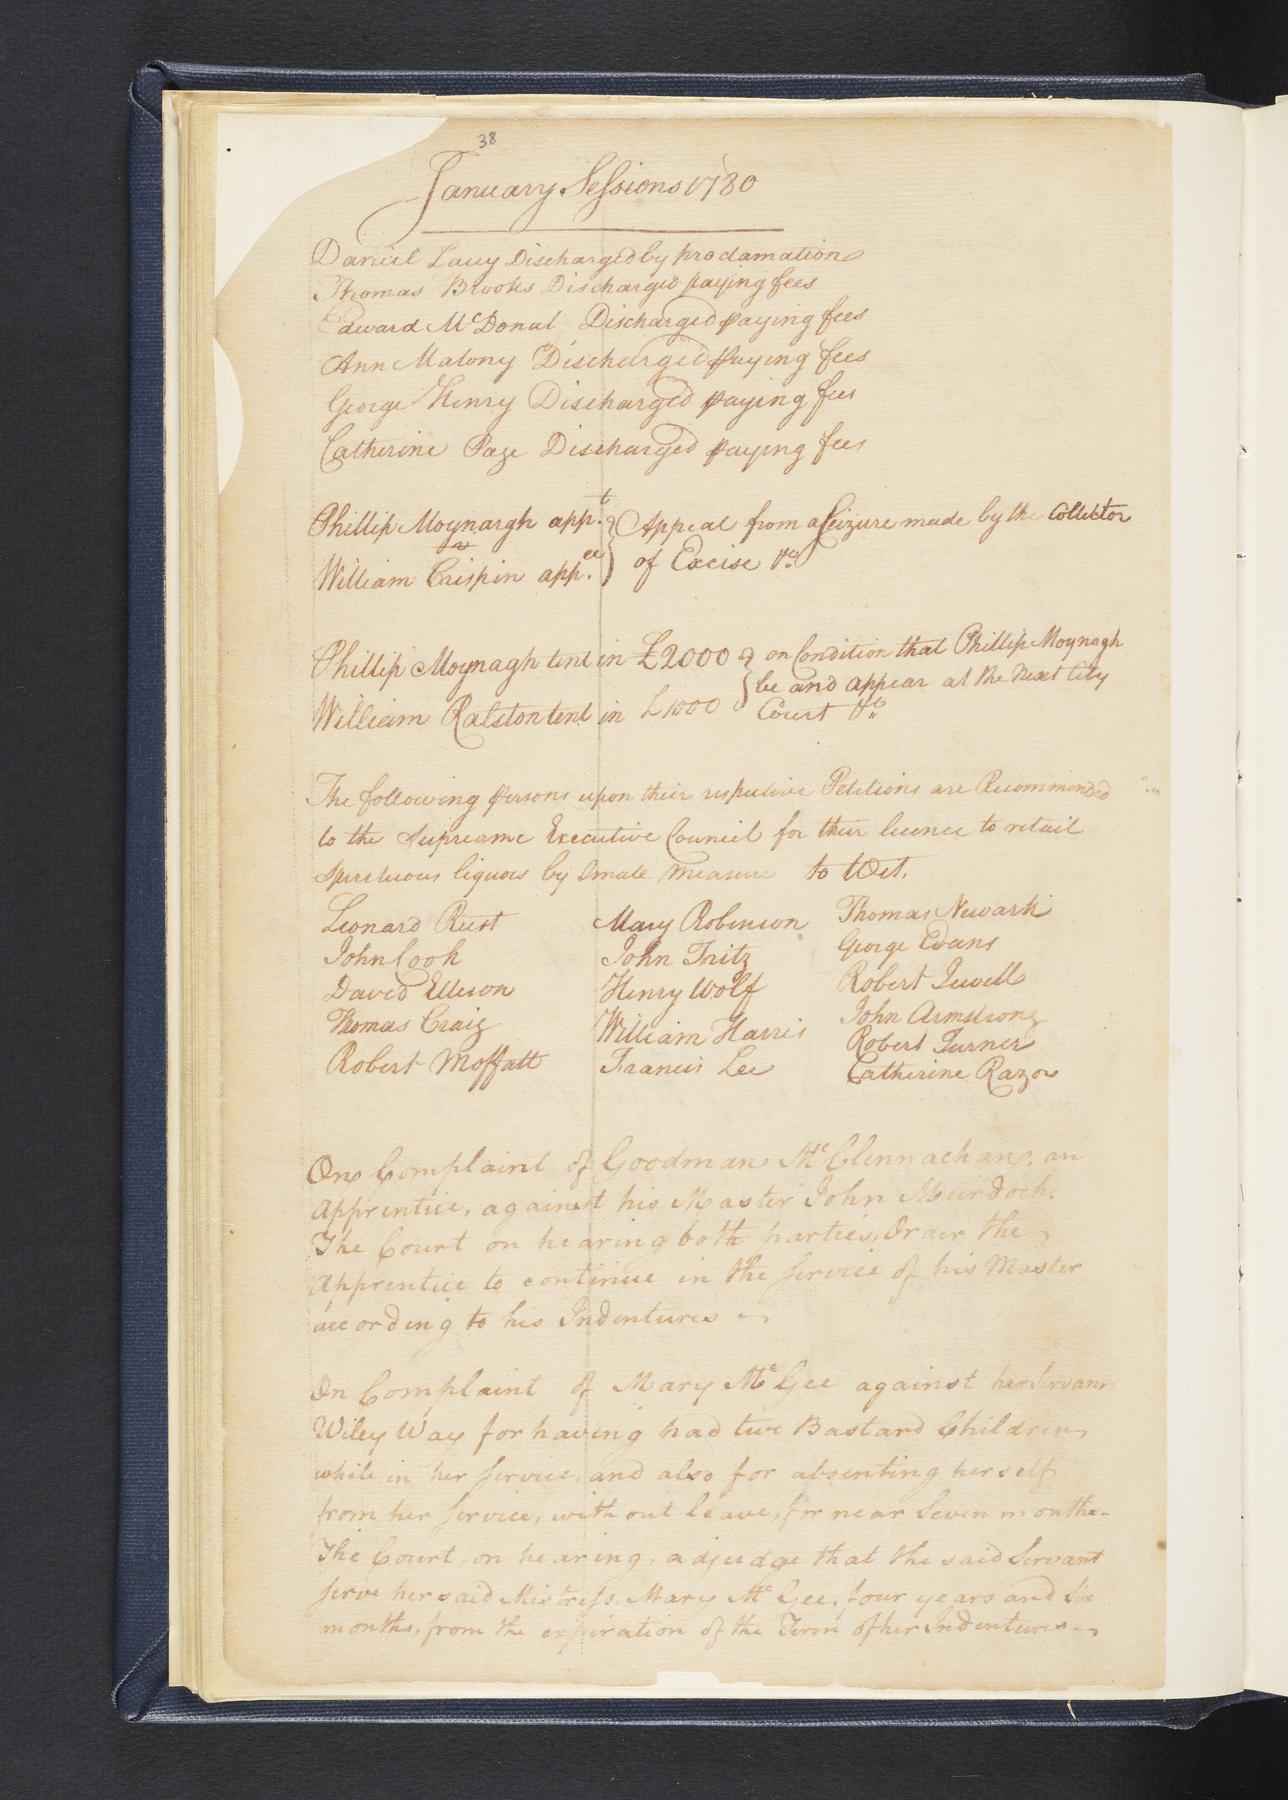 38
January Sessions 1780
Daniel Lacey Discharged by proclamation
Thomas Brooks Discharged paying fees
Edward McDonal Discharged paying fees
Ann Malony Discharged paying fees
George Henry Discharged paying fees
Catherine Page Discharged paying fees
Phillip Moynargh appt. } Appeal from a Seizure made by the Collector
v
William Crispin appee. } of Excise &c
Phillip Moynagh tent in £2000 } on Condition that Phillip Moynagh
be and appear at the next City
William Ralston tent in £1000 Court &c
The following persons upon their respective Petitions are Recommended
to the Supreame Executive Council for their licence to retail
spirituous liquors by Smale Measure to Wit,
Leonard Rust Mary Robinson Thomas Newark
John Cook John Fritz George Evans
David Elleson Henry Wolf Robert Jewell
Thomas Craig William Harris John Armstrong
Robert Moffatt Francis Lee Robert Turner
Catherine Razor
On Complaint of Goodman McClennachan, an
Apprentice, against his Master John Murdoch.
The Court on hearing both parties, Order the
Apprentice to continue in the Service of his Master
according to his Indentures
On Complaint of Mary McGee against her Servant
Wiley Way for having had two Bastard Children
while in her Service, and also for absenting herself
from her Service, with out leave, for near Seven months-
The Court on hearing, adjudge that the said Servant
serve her said Mistress Mary McGee, four years and Six
months, from the expiration of the Term of her Indentures